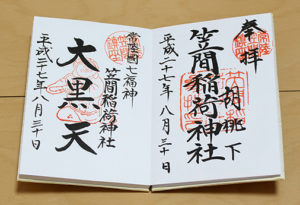 奉拝
胡桃下
笠間稲荷神社
平成二十七年八月三十日
常陸国七福神
笠間稲荷神社
大黒天
平成二十七年八月三十日